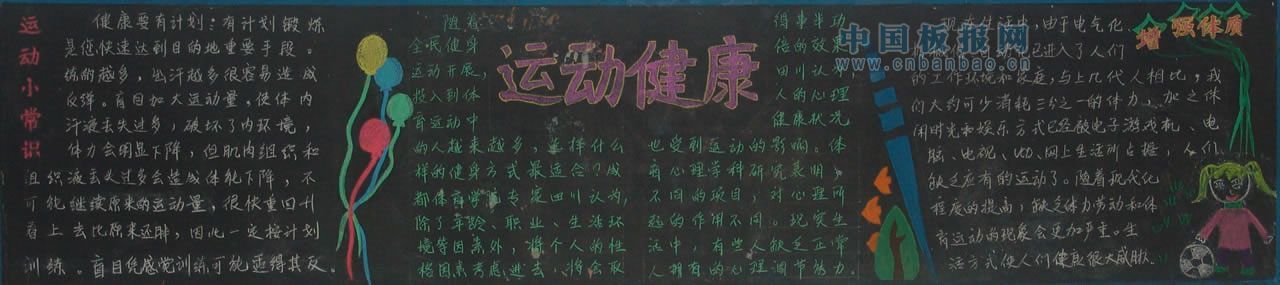 运动小常识
健康要有计划:有计划锻炼
是您快速达到目的地重要手段。
练的越多,出汗越多很容易造成
反弹。盲目加大运动量,使体内
汗液丢失过多,破坏了内环境,
体力会明显下降,但肌肉组织和
组织液丢失过多会造成体能下降,不
可能继续原来的运动量,很快重回过
看上去比原来还胖,因此一定按计划
训练。盲目凭感觉训练可能适得其反。
运动健康
随着
全民健身
运动开展,
投入到体
育运动中
的人越来越多,
样的健身方式最适合?成
都体育学院专家田川认为,
除了年龄、职业、生活环
境等因素外,将个人的性
格因素考虑进去,将会取
得事半功
倍的效果
田川认为,
人的心理
健康状况
也受到运动的影响。体
育心理学科研究表明,
不同的项目,对心理所
起的作用不同。现实生
活中,有些人缺乏正常
人拥有的心理调节能力。
增强体质
现实生活中,由于电气化
已进入了人们
的工作环境和家庭,与上几代人相比,我
们大约可少消耗三分之一的体力,加之休
闲时光和娱乐方式已经被电子游戏机、电
脑、电视、网上生活所占据,人们
缺乏应有的运动了。随着现代化
程度的提高,缺乏体力劳动和体
育运动的现象会更加严重。生
活方式使人们健康很大威胁。
中国板报网
www.cnbanbao.cn